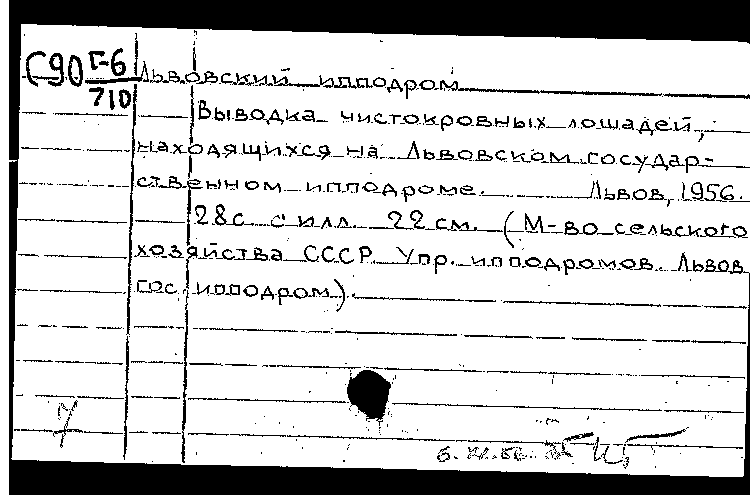 С90 Г-6/710 Львовский ипподром
Выводка чистокровных лошадей,
находящихся на Львовском государ-
ственном ипподроме. Львов, 1956.
28с. с илл. 22 см. (М-во сельского
хозяйства СССР. Упр. ипподромов. Львов.
гос. ипподром).
7